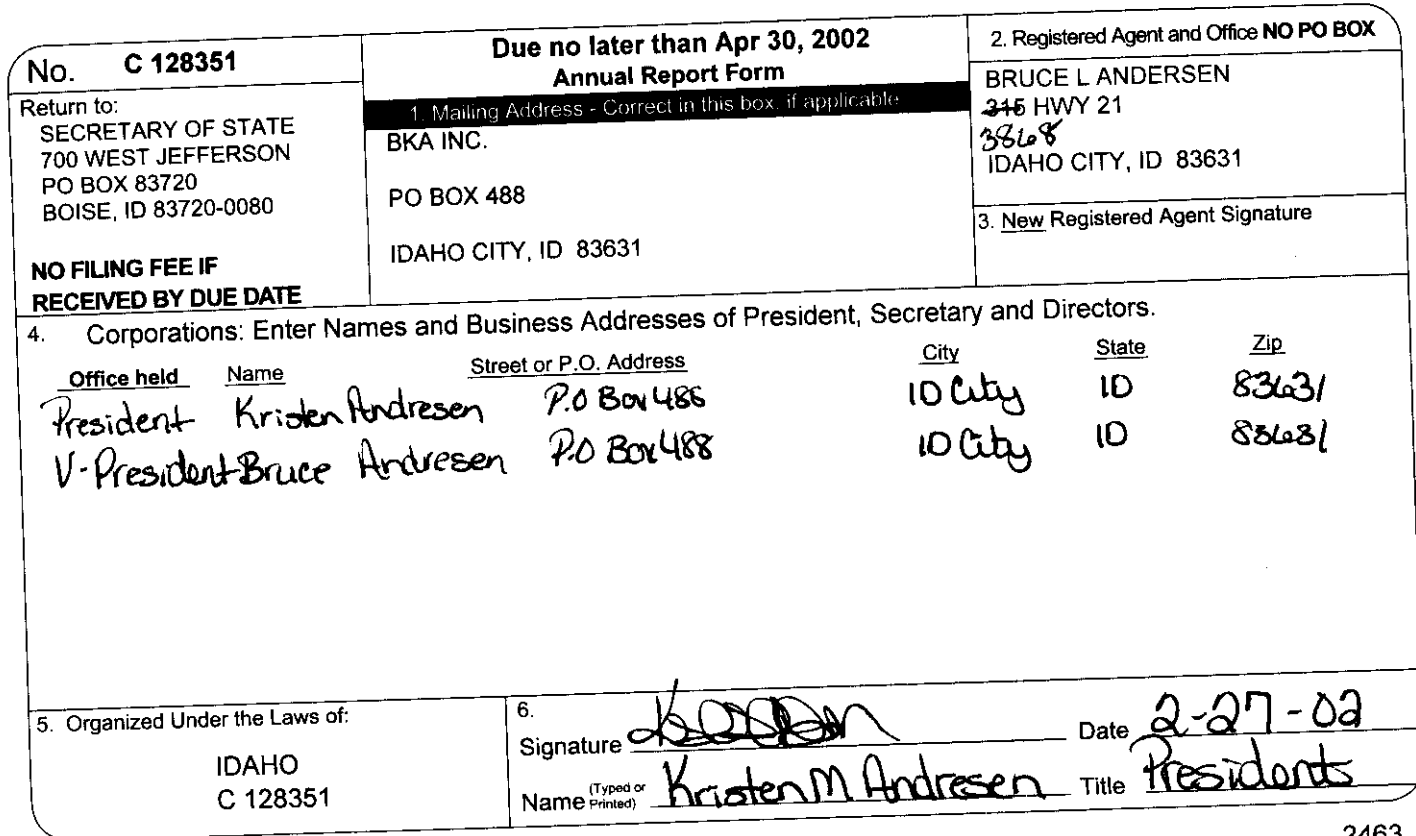 No. C 128351
Return to:
SECRETARY OF STATE
700 WEST JEFFERSON
PO BOX 83720
BOISE, ID 83720-0080
NO FILING FEE IF
RECEIVED BY DUE DATE
Due no later than Apr 30, 2002
Annual Report Form
1. Mailing Address - Correct in this box, if applicable
BKA INC.
PO BOX 488
IDAHO CITY, ID 83631
2. Registered Agent and Office NO PO BOX
BRUCE L ANDERSEN
315 HWY 21
3868
IDAHO CITY, ID 83631
3. New Registered Agent Signature
4. Corporations: Enter Names and Business Addresses of President, Secretary and Directors.
Office held Name Street or P.O. Address City State Zip
President Kristen Andresen P.O Box 488 ID City ID 83631
V-President Bruce Andresen P.O Box 488 ID City ID 83631
5. Organized Under the Laws of:
IDAHO
C 128351
6.
Signature Date 2-27-02
Name (Typed or Printed) Kristen M. Andresen Title Presidents
2463